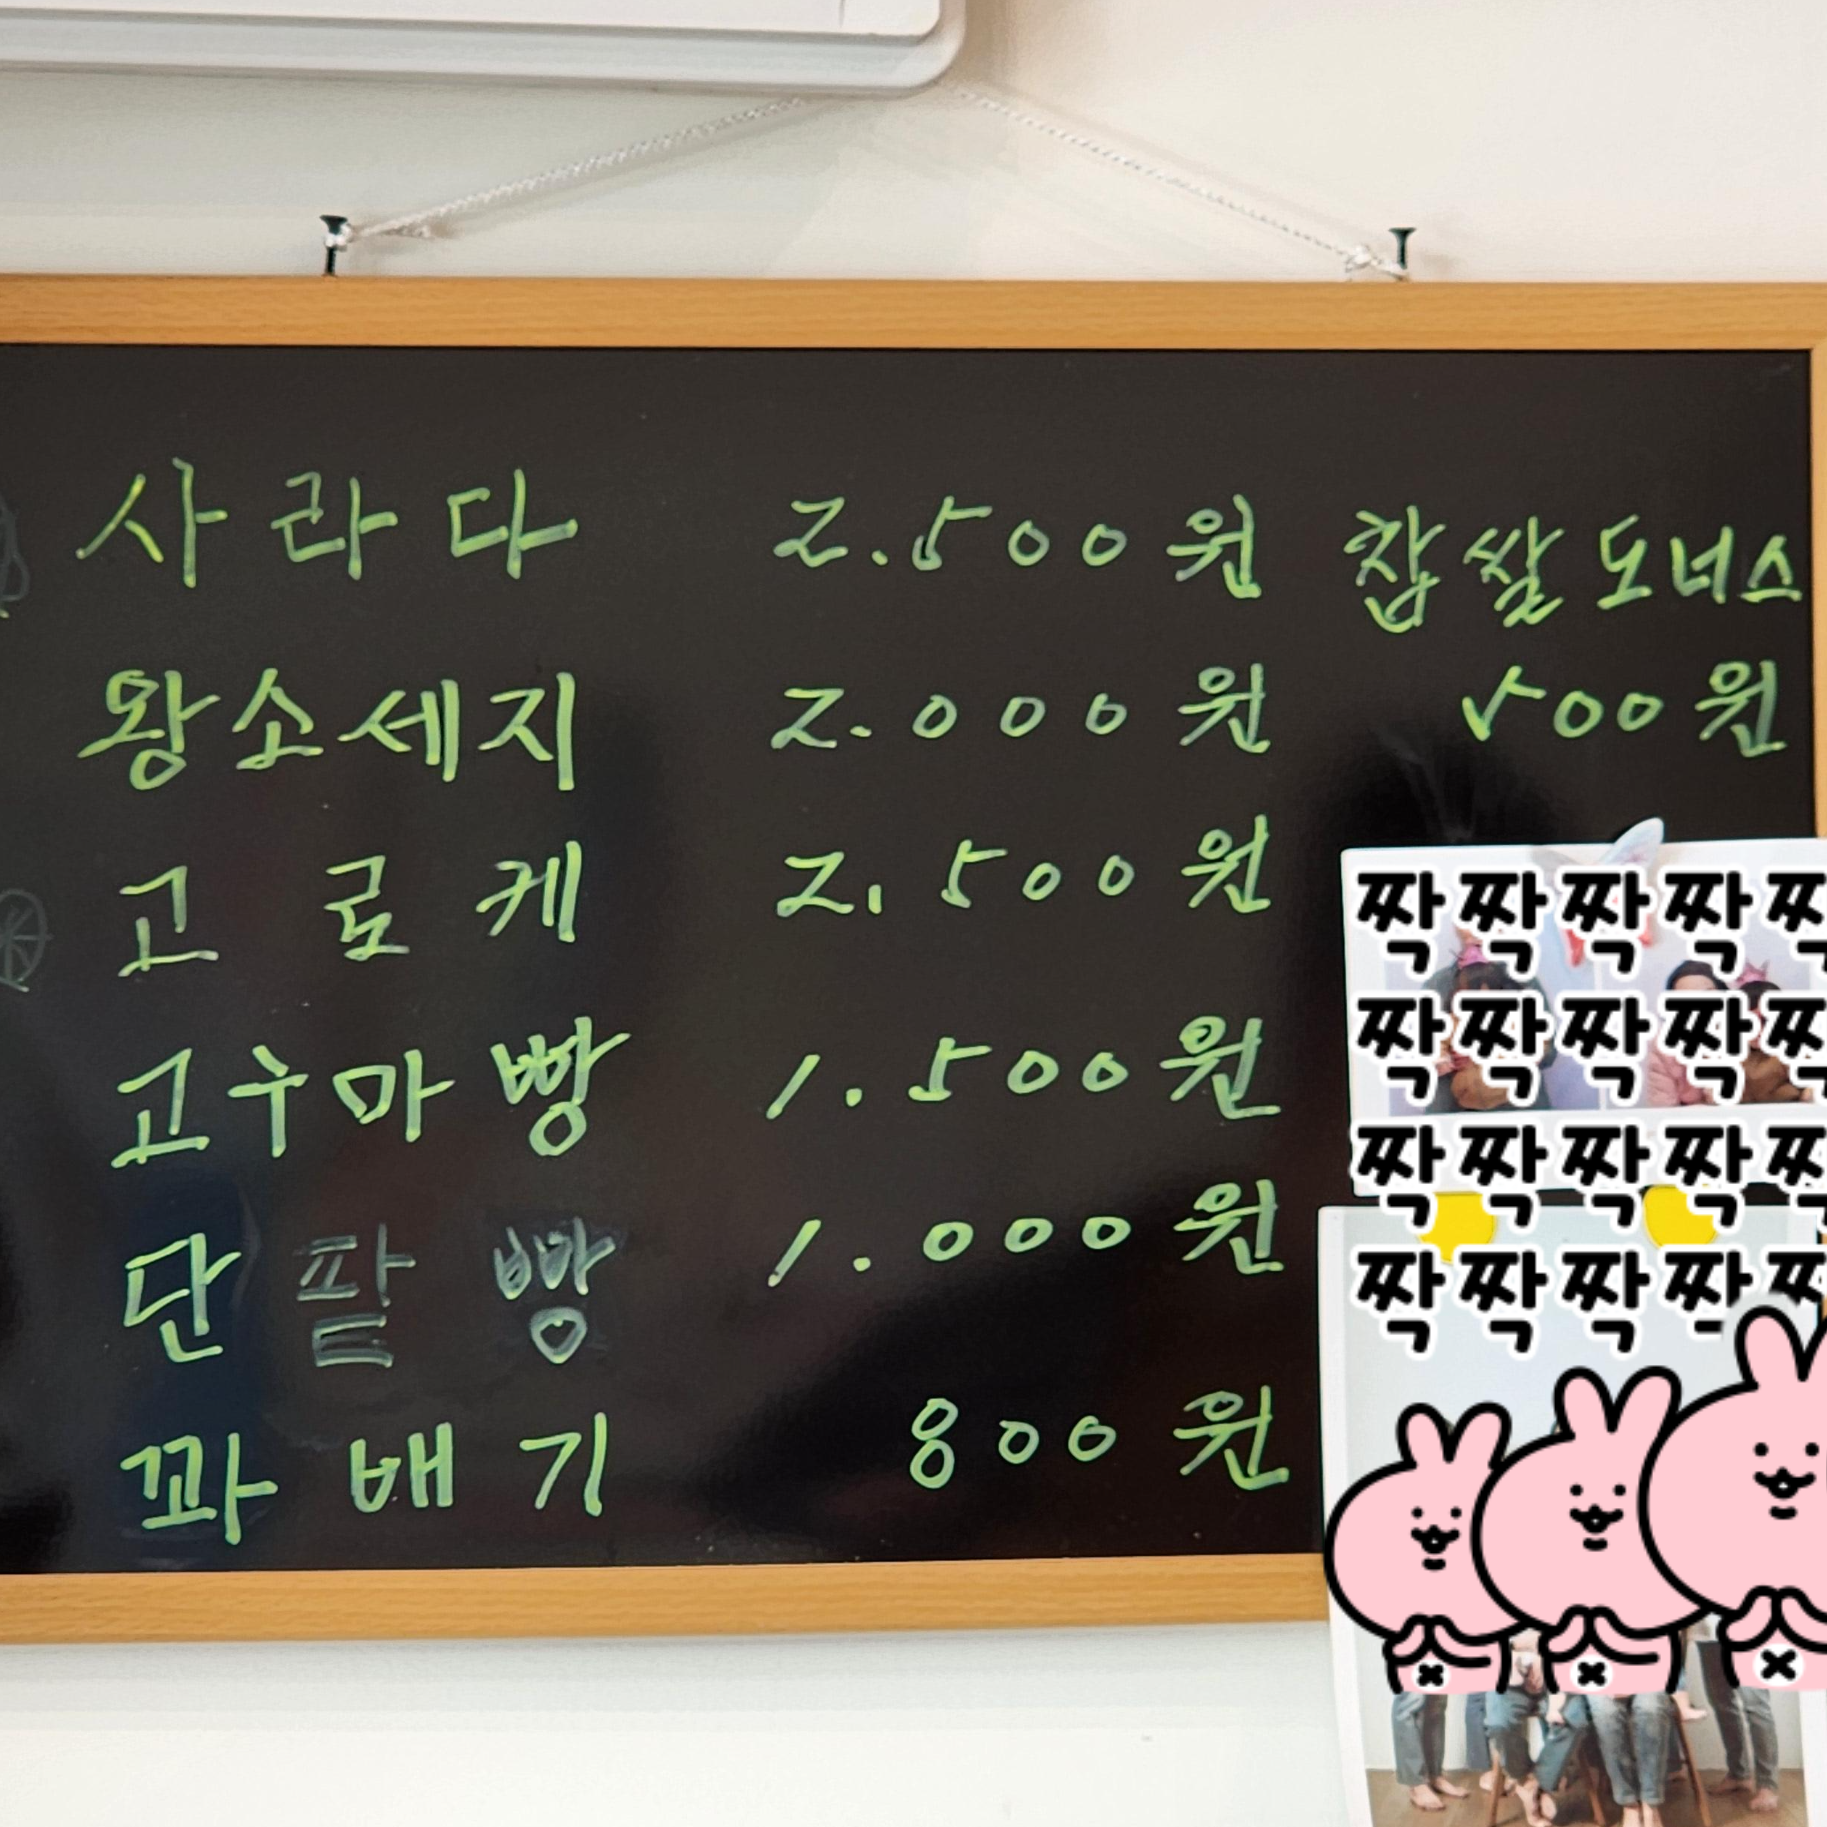 사라다 2.500원
왕소세지 2.000원
고로케 2,500원
고구마빵 1.500원
단팥빵 1.000원
꽈배기 800원
찹쌀도너스
500원
짝짝짝짝짝
짝짝짝짝짝
짝짝짝짝짝
짝짝짝짝짝